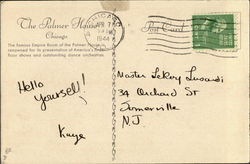 The Palmer House
Chicago
The famous Empire Room of the Palmer House is
unexcelled for its presentation of America's finest
floor shows and outstanding dance orchestras.
CHICAGO
APR 7
1944
Post Card
Hello
Yourself!
Kaye
Master LeRoy
34 Orchard St
Somerville
N.J.